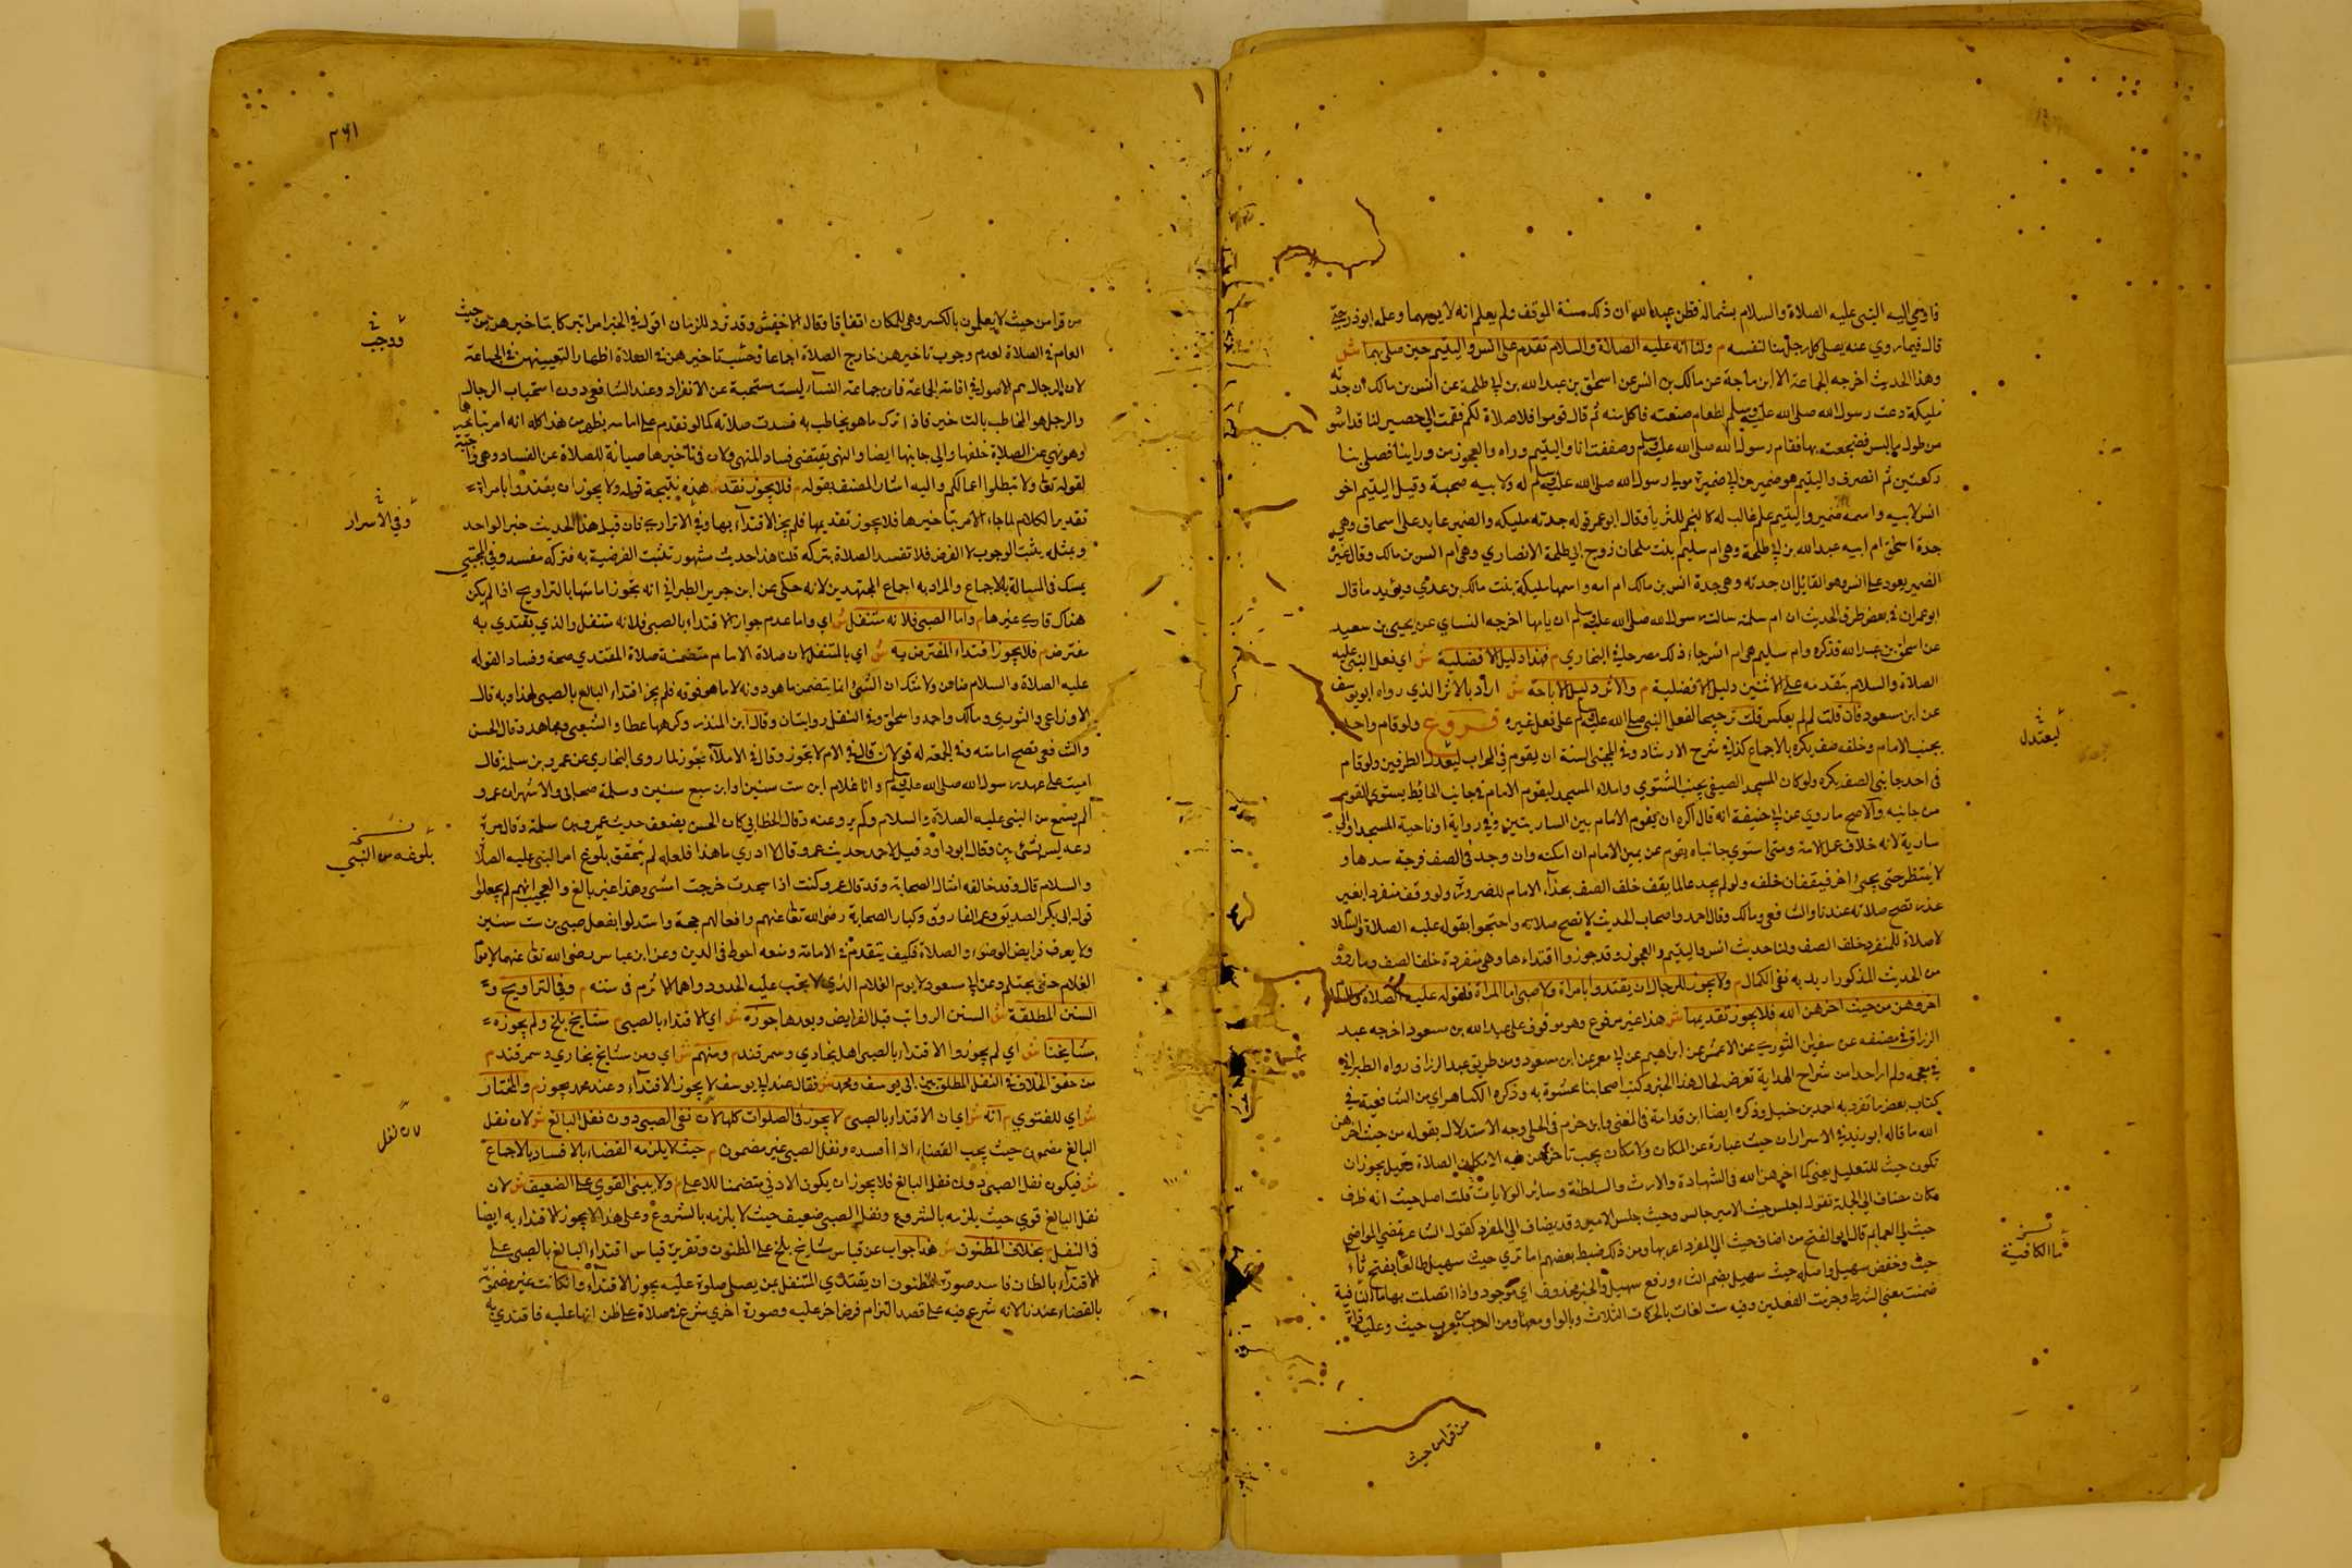 فاومى اليه النبى عليه الصلاة والسلام بشماله فظن عبد الله ان ذلك سنة الموقف ولم يعلم انه لا يومهما وعلمه ابوذر حتى
قال فيما روي عنه يصلى كل رجل منا لنفسه م ولنا انه عليه الصلاة والسلام تقدم على انس واليتيم حين صلى بهما ش
وهذا الحديث اخرجه الجماعة الا ابن ماجة عن مالك بن انس عن اسحاق بن عبد الله بن ابي طلحة عن انس بن مالك ان جدته
مليكة دعت رسول الله صلى الله عليه وسلم لطعام صنعته فاكل منه ثم قال قوموا فلاصلاة لكم فقمت الي حصير لنا قد اسو
من طول ما لبس فنضحته بها فقام رسول الله صلى الله عليه وسلم وصففت انا واليتيم وراه والعجوز من وراينا فصلى بنا
ركعتين ثم انصرف واليتيم هو ضمير بن ابي ضميرة مولى رسول الله صلى الله عليه وسلم له ولابيه صحبة وقيل اليتيم اخو
انس لابيه واسمه ضمير واليتيم علم غالب له كالنجم للثريا وقال ابو عمر قوله جدته مليكه والضمير عايد على اسحاق وهي
جدة اسحق ام ابيه عبد الله بن ابي طلحة وهي ام سليم بنت ملحان زوج ابي طلحة الانصاري وهي ام انس بن مالك وقال غيره
الضمير يعود على انس وهو القائل ان جدته وهي جدة انس بن مالك ام امه واسمها مليكة بنت مالك بن عدي ويؤيد ما قال
ابو عمر ان فى بعض طرق الحديث ان ام سليم سالت رسول الله صلى الله عليه وسلم ان ياتيها اخرجه النساي عن يحيى بن سعيد
عن اسحق بن عبد الله فذكره وام سليم هي ام انس جاء ذلك مصرحا في البخاري م فهذا دليل الافضلية ش اي فعل النبى عليه
الصلاة والسلام بتقدمه على الاثنين دليل الافضلية م والاثر دليل الاباحة ش اراد بالاثر الذي رواه ابو يوسف
عن ابن مسعود فان قلت لم لم يعكس قلت ترجيحا لفعل النبى صلى الله عليه وسلم على فعل غيره فروع ولو قام واحد
بجنب الامام وخلفه صف يكره بالاجماع كذا في شرح الارشاد وفي المجتبى السنة ان يقوم فى المحراب ليعتدل الطرفين ولو قام
فى احد جانبى الصف يكره ولو كان المسجد الصيفى بجنب الشتوي وامتلاء المسجد ليقوم الامام فى جانب الحائط يستوي القوم
من جانبيه والاصح ما روي عن ابي حنيفة انه قال اكره ان يقوم الامام بين الساريتين وفي رواية او ناحية المسجد او الي
سارية لانه خلاف عمل الامة ومتى استوي جانباه يقوم عن يمين الامام ان امكنه وان وجد فى الصف فرجة سدها و
لا ينتظر حتى يجيء اخر فيقفان خلفه ولو لم يجد عالما يقف خلف الصف بحذاء الامام للضرورة ولو وقف منفردا بغير
عذر تصح صلاته عندنا والشافعى ومالك وقال احمد واصحاب الحديث لا تصح صلاته واحتجوا بقوله عليه الصلاة والسلام
لا صلاة للمنفرد خلف الصف ولنا حديث انس واليتيم والعجوز وقد جوزوا اقتداءها وهي منفردة خلف الصف وما روي
من الحديث المذكور اريد به نفي الكمال م ولا يجوز للرجال ان يقتدوا بامراة ولا صبى اما المراة فلقوله عليه الصلاة والسلام
اخروهن من حيث اخرهن الله فلا يجوز تقديمها ش هذا غير مرفوع وهو موقوف على عبد الله بن مسعود اخرجه عبد
الرزاق فى مصنفه عن سفين الثوري عن الاعمش عن ابراهيم عن ابي معمر عن ابن مسعود ومن طريق عبد الرزاق رواه الطبراني
في معجمه ولم ار احدا من شراح الهداية تعرض لحال هذا الخبر وكتب اصحابنا محشوة به وذكره الكيا هراسي من الشافعية في
كتاب بعض ما تفرد به احمد بن حنبل وذكره ايضا ابن قدامة فى المغني وابن حزم فى المحلى وجه الاستدلال بقوله من حيث اخرهن
الله ما قاله ابو زيد في الاسرار ان حيث عبارة عن المكان ولا مكان يجب تاخرهن فيه الا مكان الصلاة وقيل يجوز ان
تكون حيث للتعليل يعنى كما اخرهن الله فى الشهادة والارث والسلطنة وساير الولايات قلت اصل حيث انه ظرف
مكان مضاف الى الجملة تقول اجلس حيث الامير جالس وحيث جلس الامير وقد يضاف الى المفرد كقول الشاعر تمضي المواضي
حيث لي العمايم قال ابو الفتح من اضاف حيث الى المفرد اعربها ومن ذلك ضبط بعضهم اما تري حيث سهيل طالعا بفتح ثاء
حيث وخفض سهيل واصله حيث سهيل بضم الثاء ورفع سهيل والخبر محذوف اي موجود واذا اتصلت بها ما النافية
ضمنت معنى الشرط وجزمت الفعلين وفيه ست لغات بالحركات الثلاث وبالواو معها ومن العرب من يعرب حيث وعليه قراة
ليعتدل
ما الكافية
من قرا من حيث
٢٦١
من قرا من حيث لا يعلمون بالكسر وهي للمكان اتفاقا وقال الاخفش وقد ترد للزمان اقول في الخبر امرا تيركا بتاخيرهن من حيث
العام فى الصلاة لعدم وجوب تاخيرهن خارج الصلاة اجماعا وحسب تاخيرهن فى الصلاة اظهارا لتعيينهن فى الجماعة
لان الرجال هم الاصول في اقامة الجماعة فان جماعة النساء ليست مستحبة عن الانفراد وعند الشافعى دون استحباب الرجال
والرجل هو المخاطب بالتاخير فاذا ترك ما هو مخاطب به فسدت صلاته كما لو تقدم على امامه يظهر من هذا كله انه امر بتاخيرها
وهو نهي عن الصلاة خلفها والي جانبها ايضا والنهى يقتضى فساد المنهى ولان فى تاخيرها صيانة للصلاة عن الفساد وهي واجبة
لقوله تعالى ولا تبطلوا اعمالكم واليه اشار المصنف بقوله م فلا يجوز تقديمها ش هذه نتيجة قوله ولا يجوز ان يقتدوا بامراة
تقدير الكلام لما جاء الامر بتاخيرها فلا يجوز تقديمها فلم يجز الاقتداء بها وفي الاتراري فان قيل هذا الحديث خبر الواحد
وبمثله يثبت الوجوب لا الفرض فلا تفسد الصلاة بتركه قلنا هذا حديث مشهور تثبت الفرضية به فتركه مفسد وفي المجتبى
يمسك فى المسالة بالاجماع والمراد به اجماع المجتهدين لانه حكى عن ابن جرير الطبراني انه تجوز امامتها بالتراويح اذا لم يكن
هناك قاري غيرها م واما الصبى فلانه متنفل ش اي واما عدم جواز الاقتداء بالصبى فلانه متنفل والذي يقتدي به
مفترض م فلا يجوز اقتداء المفترض به ش اي بالمتنفل لان صلاة الامام متضمنة صلاة المقتدي صحة وفسادا لقوله
عليه الصلاة والسلام ضامن ولا شك ان الشئ انما يتضمن ما هو دونه لا ما هو فوقه فلم يجز اقتداء البالغ بالصبى لهذا وبه قال
الاوزاعى والثوري ومالك واحمد واسحق وفى النفل روايتان وقال ابن المنذر وكرهها عطا والشعبى ومجاهد وقال الحسن
والشافعى تصح امامته وفى الجمعة له قولان قال في الام لا تجوز وقال فى الاملاء تجوز لما روى البخاري عن عمرو بن سلمة قال
اممت على عهد رسول الله صلى الله عليه وسلم وانا غلام ابن ست سنين او ابن سبع سنين وسلمة صحابى والاشهر ان عمرو
لم يسمع من النبى عليه الصلاة والسلام ولم يرو عنه وقال الخطابى كان الحسن يضعف حديث عمرو بن سلمة وقال مرة
دعه ليس بشئ بين وقال ابو داود قيل لاحمد حديث عمرو قال لا ادري ما هذا فلعله لم يتحقق بلوغ امر النبى عليه الصلاة
والسلام قال وقد خالفه افعال الصحابة وقد قال عمرو كنت اذا سجدت خرجت استى وهذا غير بالغ والعجب انهم لم يجعلوا
قول ابى بكر الصديق وعمر الفاروق وكبار الصحابة رضى الله تعالى عنهم وافعالهم حجة واستدلوا بفعل صبى بن ست سنين
ولا يعرف فرايض الوضوء والصلاة فكيف يتقدم فى الامامة ومنعه احوط فى الدين وعن ابن عباس رضى الله تعالى عنهما لا يوم
الغلام حتى يحتلم وعن ابن مسعود لا يوم الغلام الذي لا تجب عليه الحدود رواهما الاثرم فى سننه م وفي التراويح و
السنن المطلقة ش السنن الرواتب قبل الفرايض وبعدها جوزه ش اي الاقتداء بالصبى م مشايخ بلخ ولم يجوزه
مشايخنا ش اي لم يجوزوا الاقتداء بالصبى اهل بخاري وسمرقند م ومنهم ش اي ومن مشايخ بخاري وسمرقند م
من حقق الخلاف فى النفل المطلق بين ابى يوسف ومحمد ش فقال عند ابي يوسف لا يجوز الاقتداء وعند محمد يجوز م والمختار
ش اي للفتوي م انه ش اي ان الاقتداء بالصبى م لا يجوز فى الصلوات كلها لان نفل الصبى دون نفل البالغ ش لان نفل
البالغ مضمون حيث يجب القضاء اذا افسده ونفل الصبى غير مضمون م حيث لا يلزمه القضاء بالافساد بالاجماع
ش فيكون نفل الصبى دون نفل البالغ فلا يجوز ان يكون الادنى متضمنا للاعلى م ولا يبنى القوي على الضعيف ش لان
نفل البالغ قوي حيث يلزمه بالشروع ونفل الصبى ضعيف حيث لا يلزمه بالشروع وعلى هذا لا يجوز الاقتداء به ايضا
فى النفل م بخلاف المظنون ش هذا جواب عن قياس مشايخ بلخ على المظنون وتقرير قياس اقتداء البالغ بالصبى على
الاقتداء بالظان فاسد صورة المظنون ان يقتدي المتنفل بمن يصلى صلوة عليه يجوز الاقتداء وان كانت غير مضمونة
بالقضاء عندنا لانه شرع فيه على قصد التزام فرض اخر عليه وصورة اخري شرع في صلاة على ظن انها عليه فاقتدي به
ووجب
وفي الاسرار
نسخه
بلوغه من النبي
لان نفل